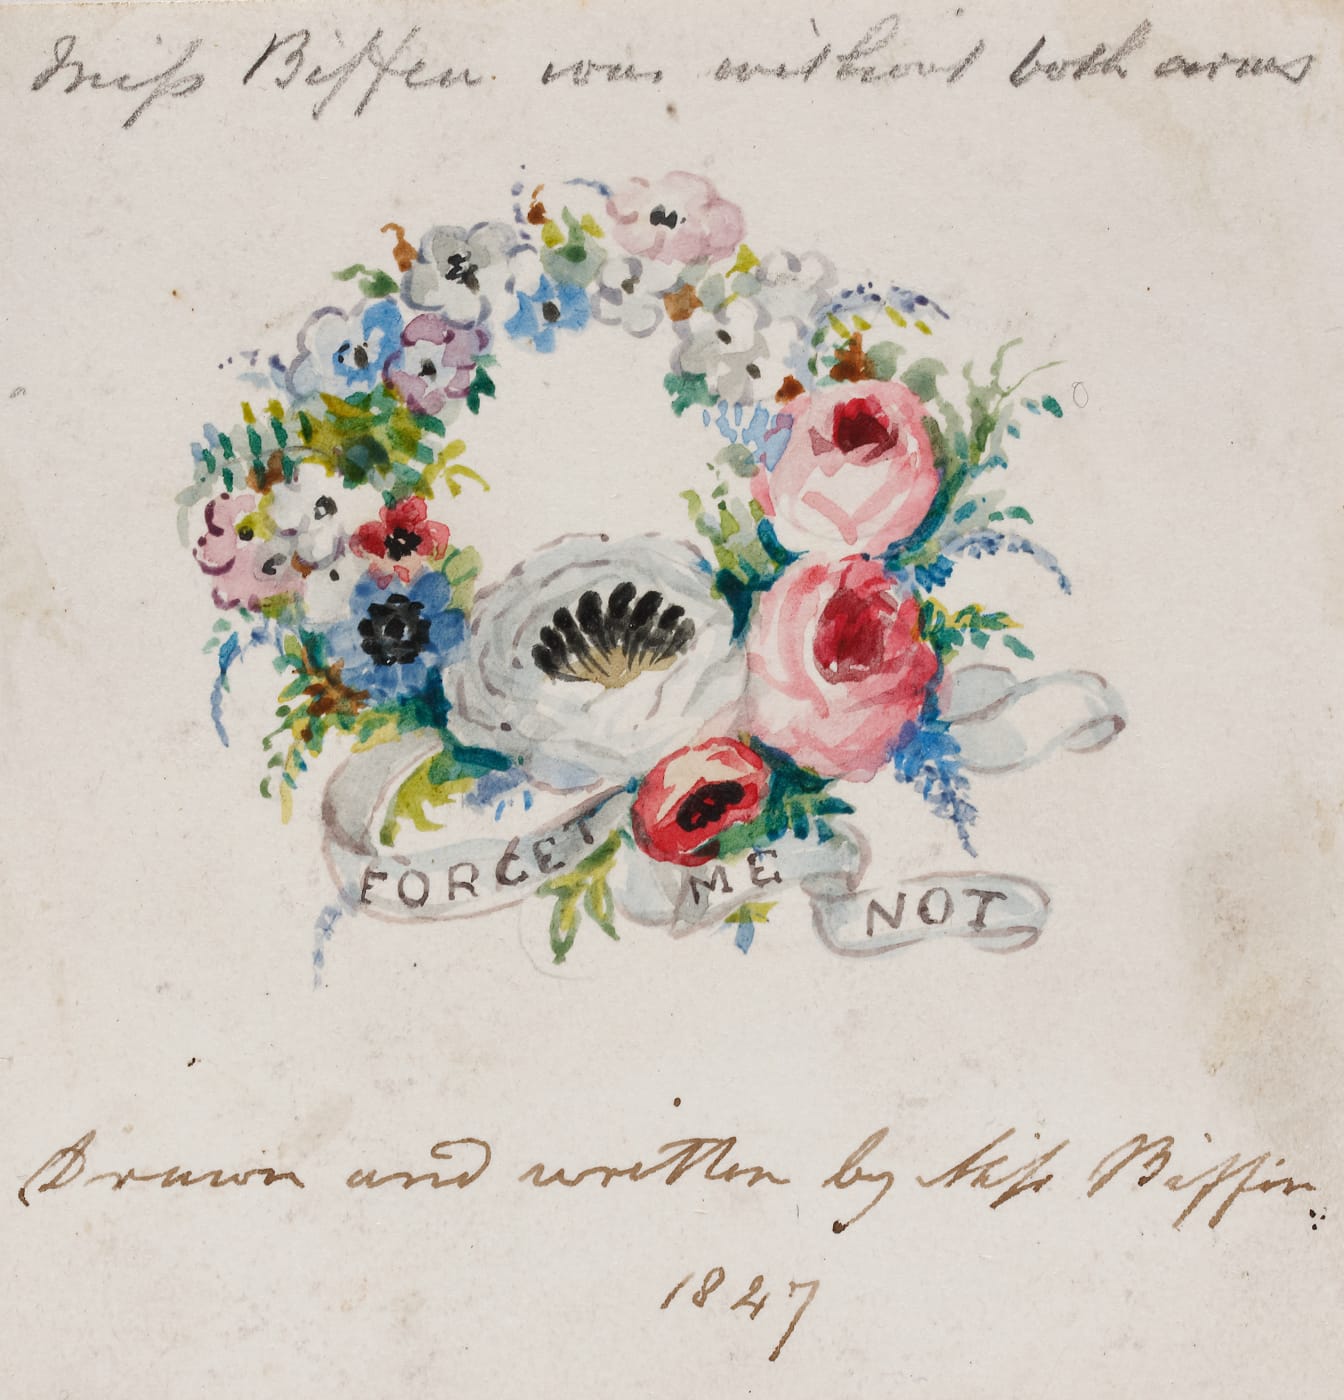 Miss Biffen was without both arms
FORGET ME NOT
Drawn and written by Miss Biffin
1847